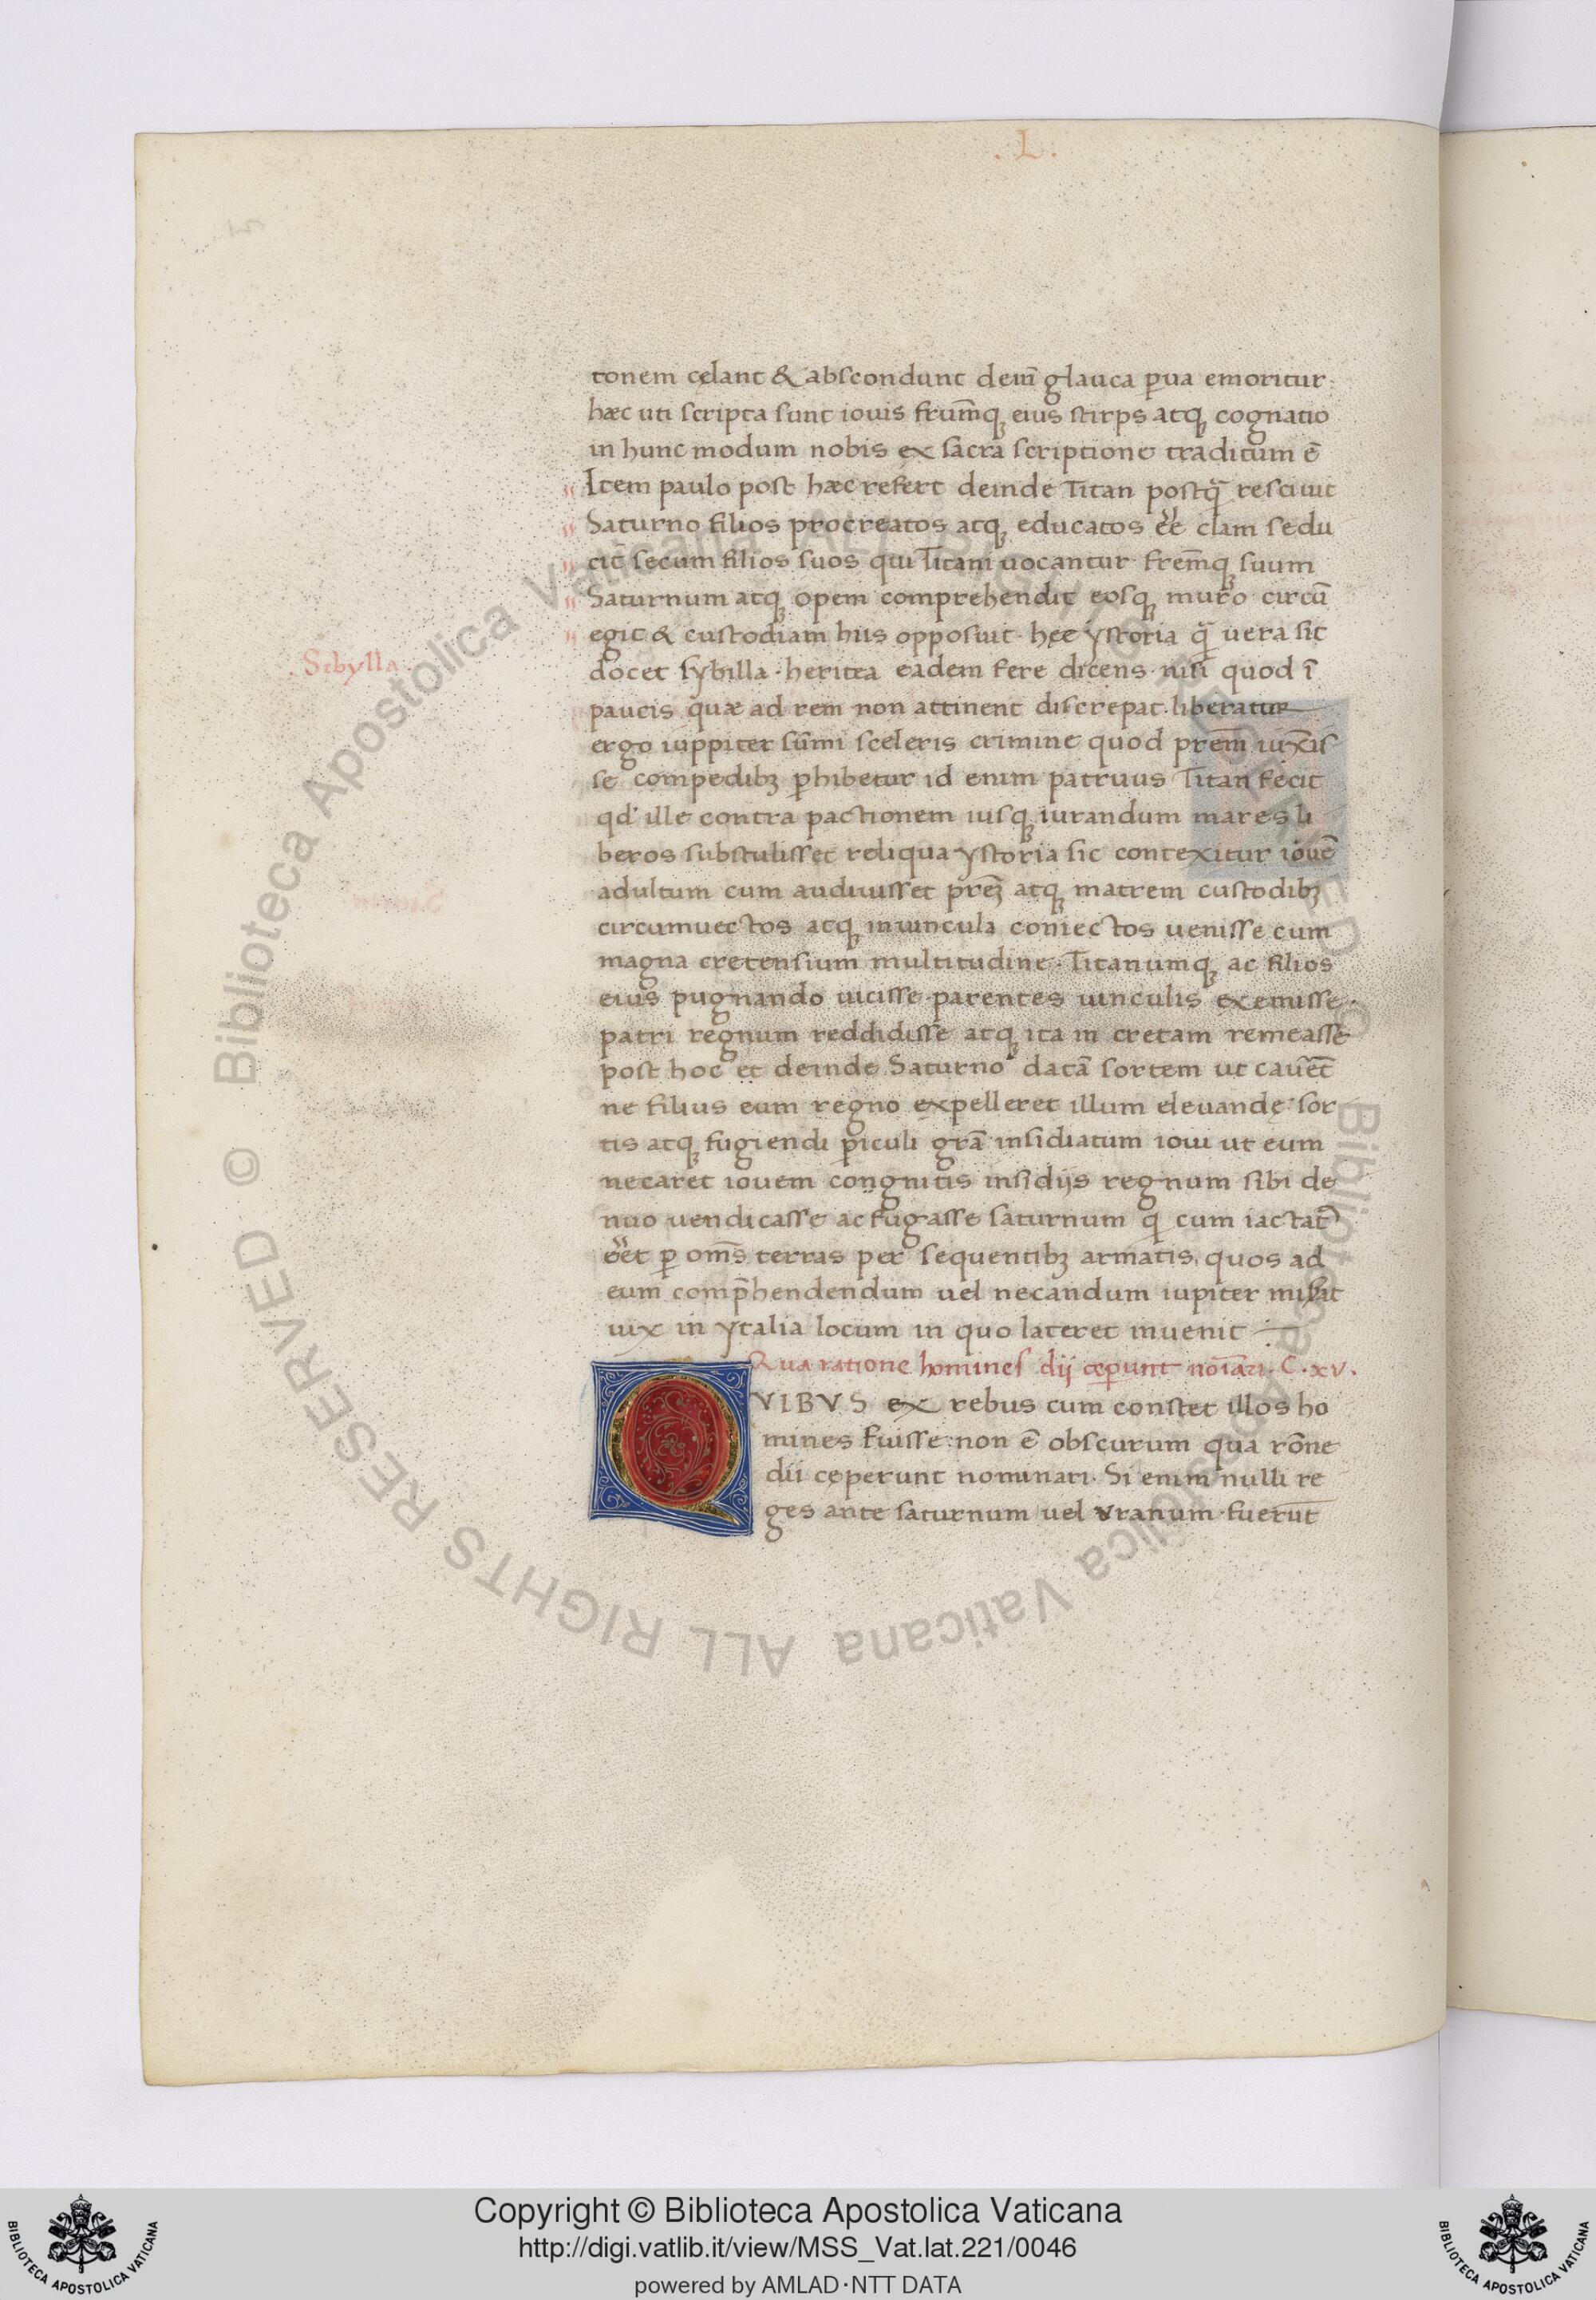 . L .
tonem cęlant & abscondunt dein̄ glauca ꝑua emoritur
hæc uti scripta sunt iouis frūmq; eius stirps atq; cognatio
in hunc modum nobis ex sacra scriptione traditum ē
Item paulo post hæc refert deinde Titan postq̄ resciuit
Saturno filios procreatos atq; educatos eē̄ clam sedu
cit secum filios suos qui Titani uocantur frēmq; suum
Saturnum atq; opem comprehendit eosq; muro circū
egit & custodiam hiis opposuit · hęc ystoria q̄ uera sit
. Sibylla .
docet sybilla · heritea eadem fere dicens · nisi quod ī
paucis quæ ad rem non attinent discrepat · liberatur
ergo iuppiter sūmi sceleris crimine quod prēm uīxis
se compedibꝫ ꝓhibetur id enim patruus Titan fecit
qd' ille contra pactionem iusq; iurandum mares li
beros substulisset reliqua ystoria sic contexitur iouē
adultum cum audiuisset prēꝫ atq; matrem custodibꝫ
circumuectos atq; in uincula coniectos uenisse cum
magna cretensium multitudine · Titanumq; ac filios
eius pugnando uicisse parentes uinculis exemisse ·
patri regnum reddidisse atq; ita in cretam remeasse
post hoc et deinde Saturno datā sortem ut cauēēt
ne filius eum regno expelleret illum eleuandę sor
tis atq; fugiendi ꝑiculi grā insidiatum ioui ut eum
necaret iouem congnitis insidijs regnum sibi de
nuo uendicasse ac fugasse saturnum q̄ cum iactat᷑
eēt ꝑ om̄s terras per sequentibꝫ armatis quos ad
eum comp̄hendendum uel necandum iupiter misit
uix in ytalia locum in quo lateret inuenit
Qua ratione homines dij cęperunt noīari · C · xv .
QVIBVS ex rebus cum constet illos ho
mines fuisse non ē obscurum qua rōne
dii cęperunt nominari · Si enim nulli re
ges ante saturnum uel vranum fuerūt
© Biblioteca Apostolica Vaticana ALL RIGHTS RESERVED
© Biblioteca Apostolica Vaticana ALL RIGHTS RESERVED
Copyright © Biblioteca Apostolica Vaticana
http://digi.vatlib.it/view/MSS_Vat.lat.221/0046
powered by AMLAD·NTT DATA
BIBLIOTECA APOSTOLICA VATICANA
BIBLIOTECA APOSTOLICA VATICANA